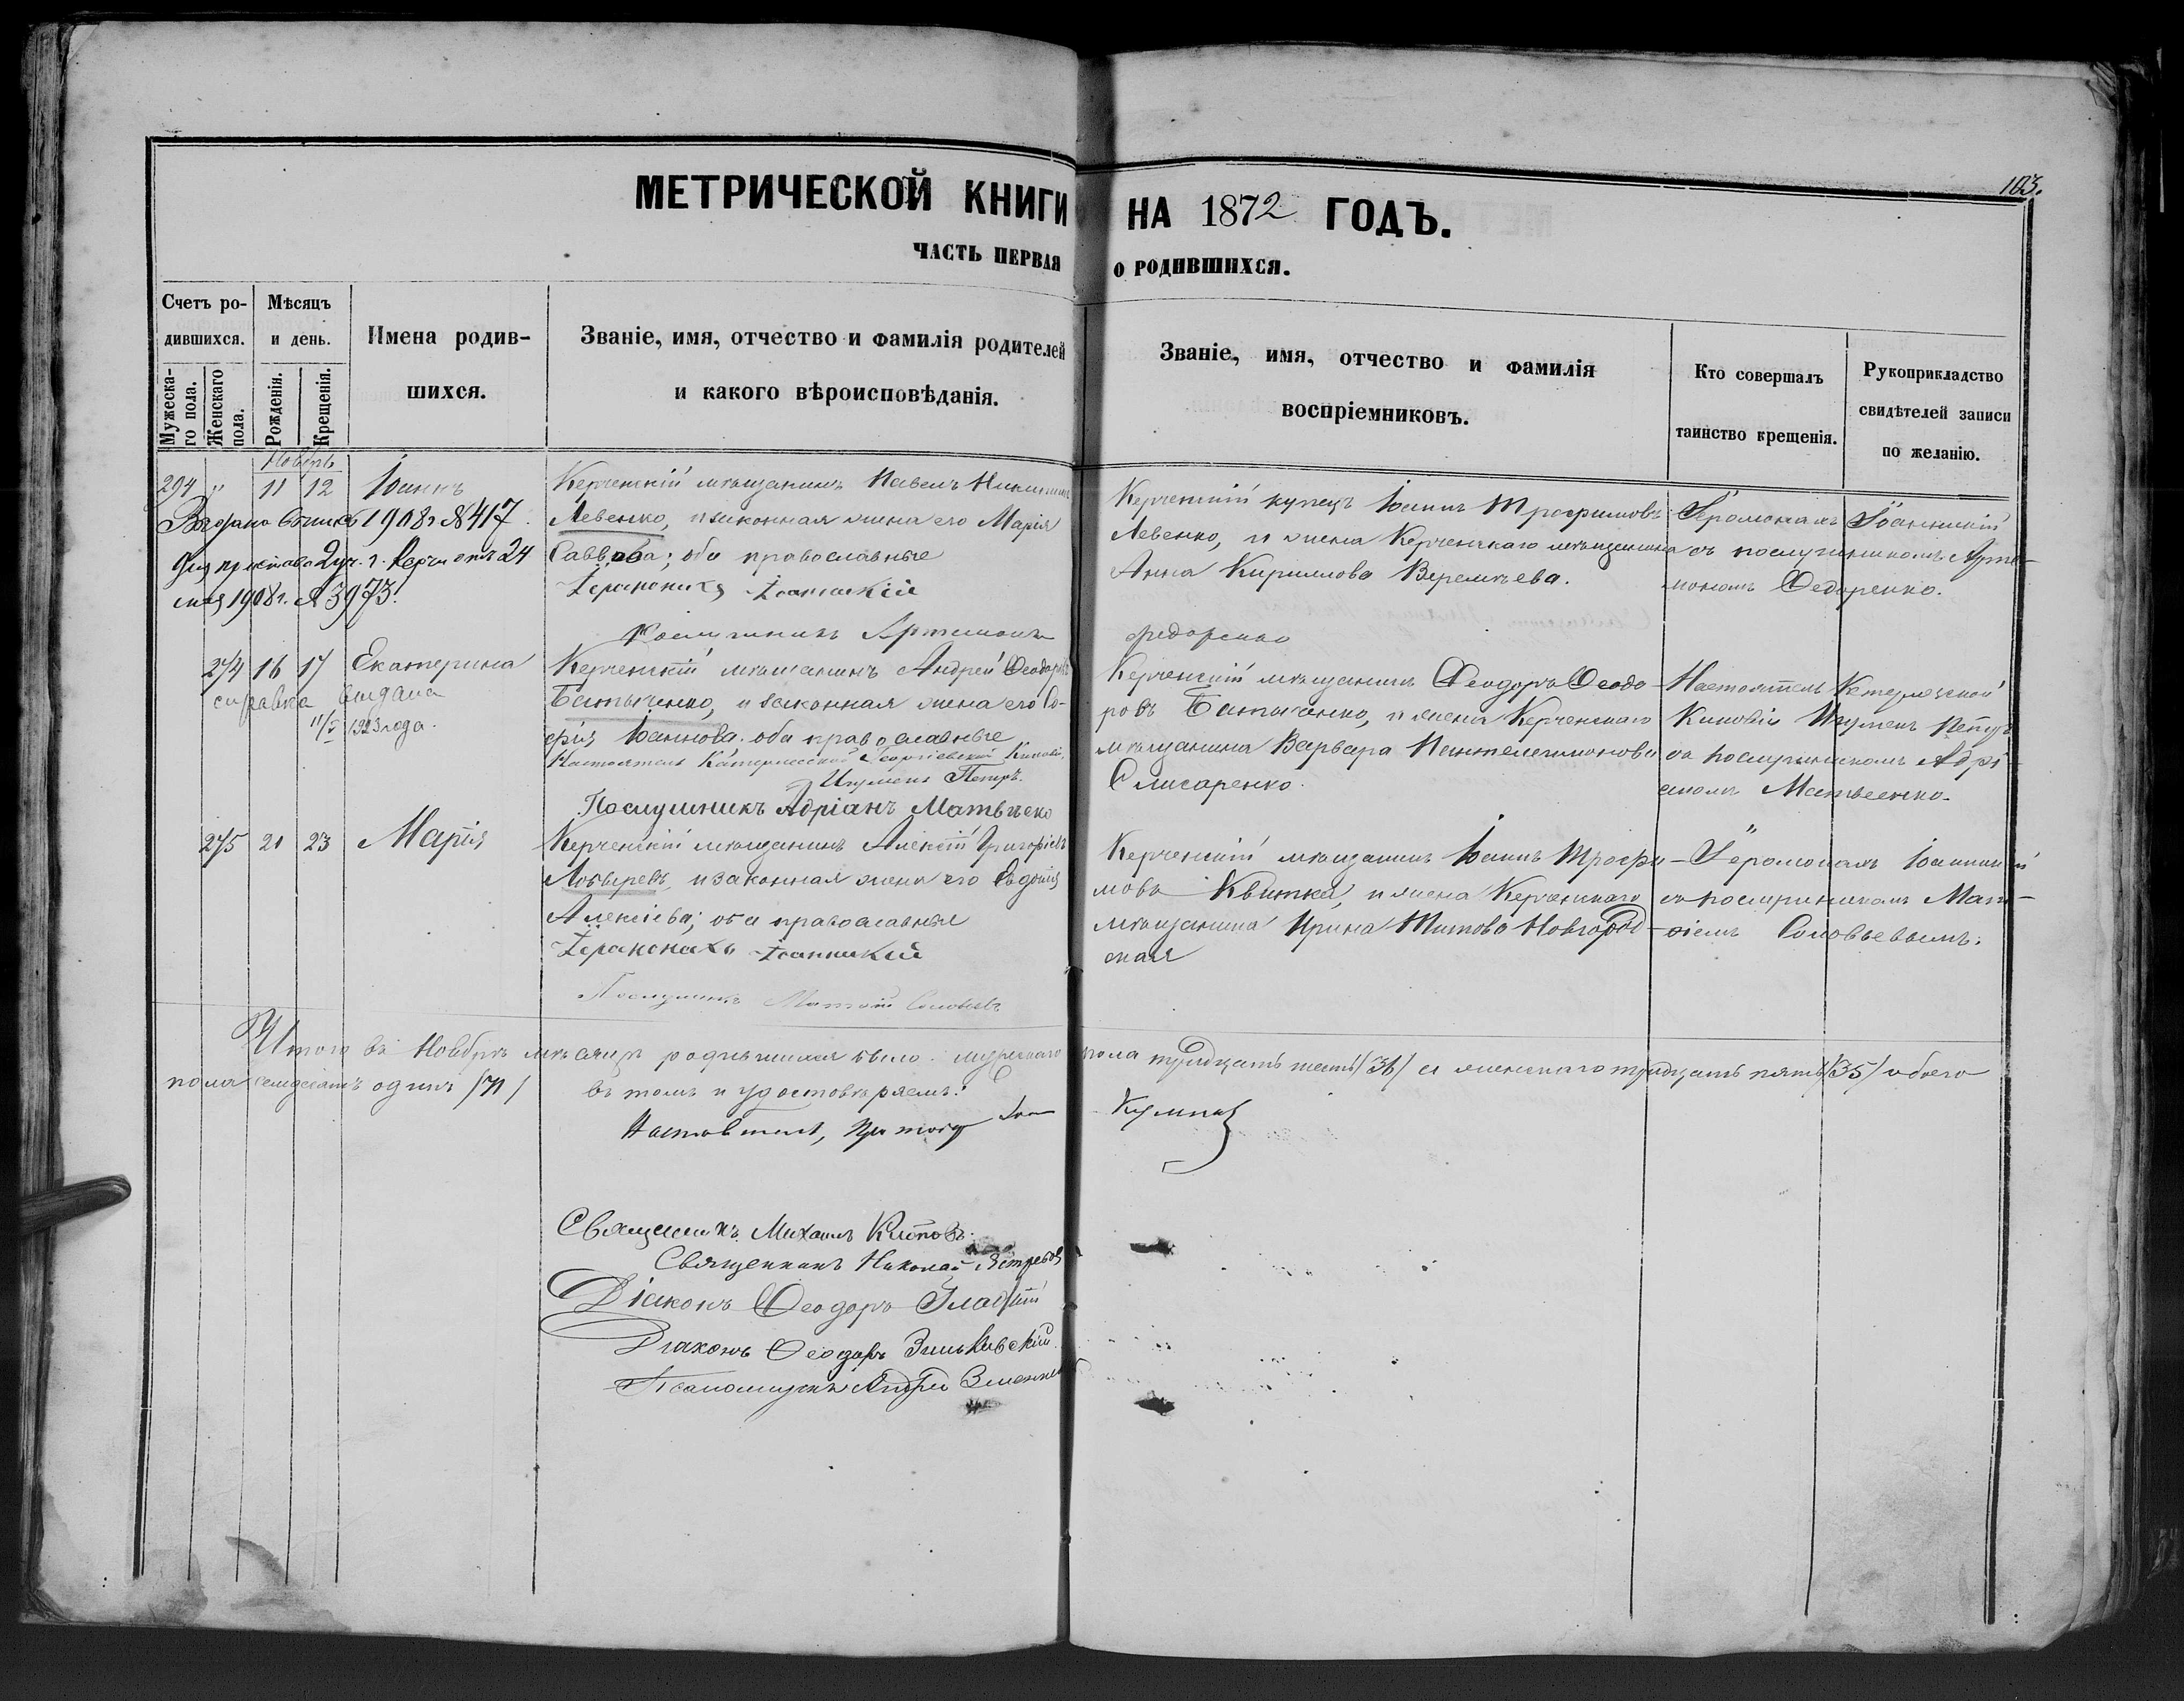 103.
МЕТРИЧЕСКОЙ КНИГИ НА 1872 ГОДЪ.
ЧАСТЬ ПЕРВАЯ О РОДИВШИХСЯ.
Счетъ ро-
дившихся.
Мужеска-
го пола.
Женскаго
пола.
Мѣсяцъ
и день.
Рожденія.
Крещенія.
Имена родив-
шихся.
Званіе, имя, отчество и фамилія родителей
и какого вѣроисповѣданія.
Званіе, имя, отчество и фамилія
воспріемниковъ.
Кто совершалъ
таинство крещенія.
Рукоприкладство
свидѣтелей записи
по желанію.
Ноябрь
294 " 11 12 Іоаннъ
Выдана 1908 г № 417
для пристава 2 уч. г. Керчи отъ 24
мая 1908 г. № 3973.
Керченскій мѣщанинъ Павелъ
Левенко, и законная жена его Марія
Саввова; оба православные
Іеромонахъ Іоанникій
Послушникъ Артемонъ Федоренко
Керченскій купецъ Іоаннъ Трофимовъ
Левенко, и жена Керченскаго мѣщанина
Анна Кириллова Веремѣева.
Іеромонахъ Іоанникій
съ послушникомъ Арте-
мономъ Федоренко.
274 16 17 Екатерина
справка выдана
11/V 1923 года.
Керченскій мѣщанинъ Андрей Ѳеодоровъ
Батыченко, и законная жена его Со-
фія Іоаннова. оба православные
Настоятель Катерлесской Георгіевской Киновіи
Игуменъ Петръ.
Послушникъ Адріанъ Матвѣенко
Керченскій мѣщанинъ Ѳеодоръ Ѳеодо-
ровъ Батыченко, и жена Керченскаго
мѣщанина Варвара Пантелеимонова
Слисаренко.
Настоятель Катерлезской
Киновіи Игуменъ Петръ
съ послушникомъ Адрі-
аномъ Матвеенко.
275 21 23 Марія
Керченскій мѣщанинъ Алексій Григоріевъ
и законная жена его Евдокія
Алексіева; оба православные
Іеромонахъ Іоанникій
Послушникъ Матѳій Соловьевъ
Керченскій мѣщанинъ Іоаннъ Трофи-
мовъ Квитка, и жена Керченскаго
мѣщанина Ирина Титова Новгород-
ская
Іеромонахъ Іоанникій
съ послушникомъ Мат-
ѳіемъ Соловьевымъ.
Итого въ Ноябрѣ мѣсяцѣ родившихся было: мужескаго пола тридцать шесть /36/ а женскаго тридцать пять /35/ обоего
пола семьдесятъ одинъ /71/ въ томъ и удостовѣряемъ:
Священникъ Михаилъ
Священникъ Николай Ястребовъ
Діаконъ Ѳеодоръ
Діаконъ Ѳеодоръ Зиньковскій
Псаломщикъ Андрей